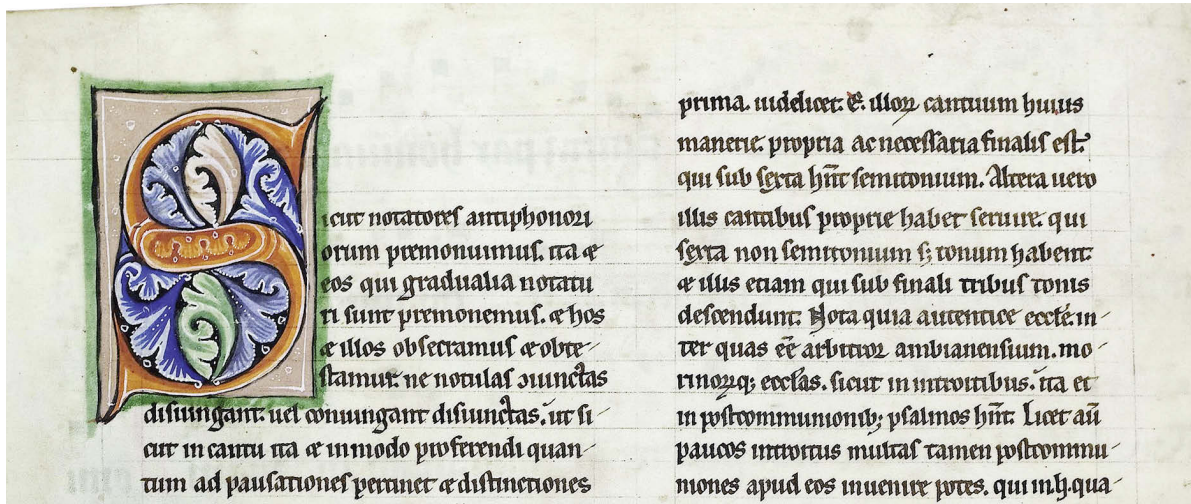 Sicut notatores antiphonori
orum premonuimus. ita &
eos qui gradualia notatu
ri sunt premonemus. & hos
& illos obsecramus & obte-
stamur. ne notulas ↄiunctas
disiungant. uel coniungant disiunctas. ut si-
cut in cantu ita & in modo proferendi quan-
tum ad pausationes pertinet & distinctiones
prima. uidelicet. E. illoꝝ cantuum huius
manerie. propria ac necessaria finalis est.
qui sub sexta hn̄t semitonium. Altera uero
illis cantibus proprie habet seruire. qui
sexta non semitonium sꝫ tonum habent.
& illis etiam qui sub finali tribus tonis
descendunt. Nota quia autentice eccl̄e. in-
ter quas eē arbitror ambianensium. mo-
rinoꝝqꝫ eccl̄as. sicut in introitibus. ita et
in postcommunionibꝫ psalmos hn̄t. Licet aū
paucos introitus multas tamen postcommu-
niones apud eos inuenire potes. qui in.h.qua-